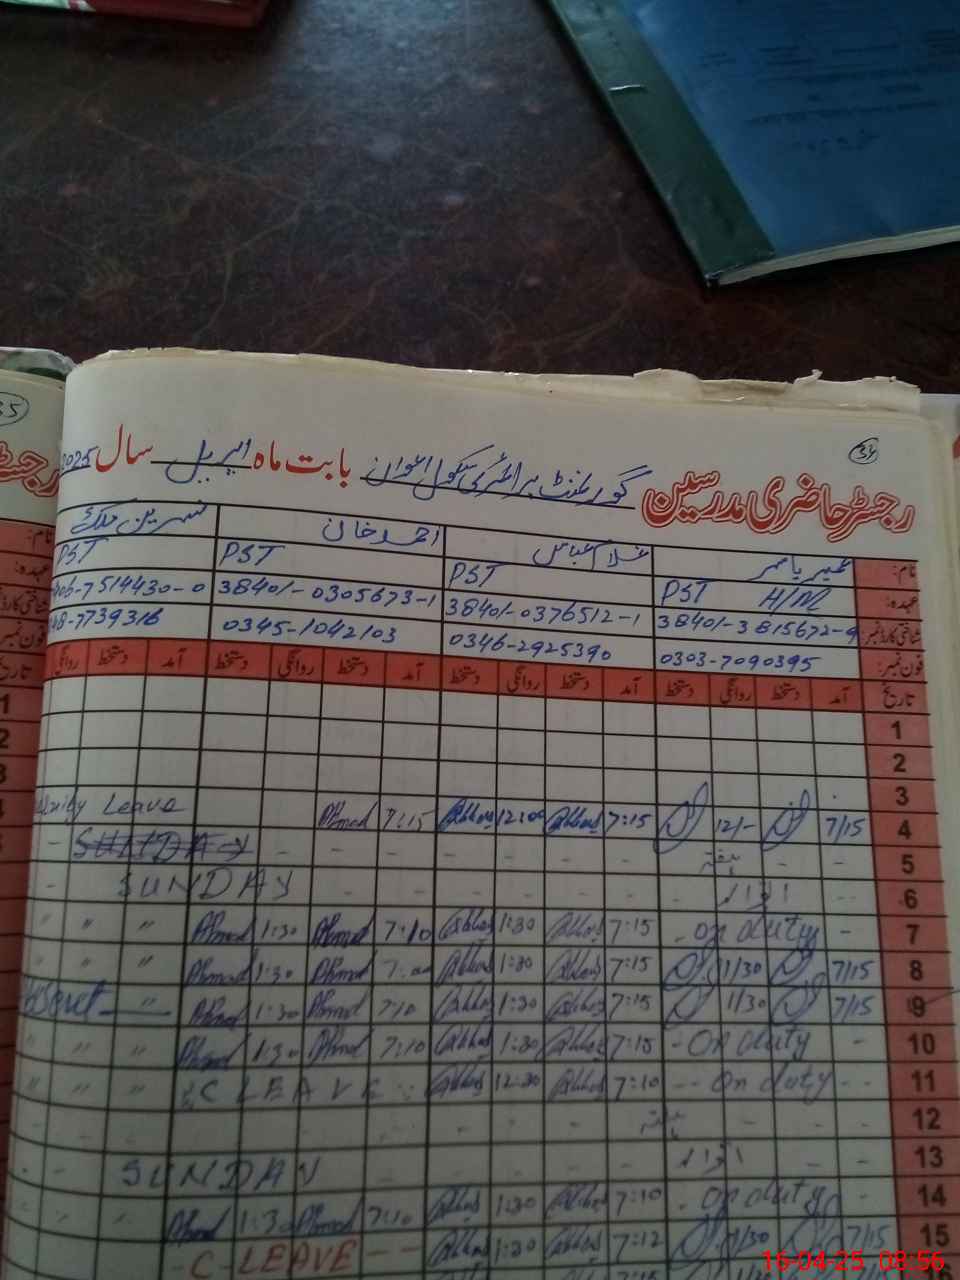 36
رجسٹر حاضری مدرسین گورنمنٹ پرائمری سکول اعوان بابت ماہ اپریل سال 2025
نام: عمیر یاسر غلام عباس احمد خان نسرین ملک
عہدہ: PST H/M PST PST PST
شناختی کارڈ نمبر 38401-3815672-9 38401-0376512-1 38401-0305673-1 06-7514430-0
فون نمبر: 0303-7090395 0346-2925390 0345-1042103 8-7739316
تاریخ آمد دستخط روانگی دستخط آمد دستخط روانگی دستخط آمد دستخط روانگی دستخط آمد دستخط روانگی
1
2
3
4 7/15 12/- 7:15 Abbas 12:00 Abbas 7:15 Ahmad Leave
5 ہفتہ - - - - - - SUNDAY -
6 اتوار - - - - - - SUNDAY -
7 - on duty - 7:15 Abbas 1:30 Abbas 7:10 Ahmad 1:30 Ahmad " " "
8 7/15 1/30 7:15 Abbas 1:30 Abbas 7:00 Ahmad 1:30 Ahmad " " "
9 7/15 1/30 7:15 Abbas 1:30 Abbas 7:10 Ahmad 1:30 Ahmad "
10 - On duty - 7:15 Abbas 1:30 Abbas 7:10 Ahmad 1:30 Ahmad " " "
11 -- On duty -- 7:10 Abbas 12:30 Abbas C LEAVE " " "
12 ہفتہ - - - - - -
13 اتوار - - - - - - SUNDAY - -
14 - on duty 7:10 Abbas 1:30 Abbas 7:10 Ahmad 1:30 Ahmad " "
15 7/15 1/30 7:12 Abbas 1:30 Abbas -- C LEAVE
16
35
رجسٹ
نام:
عہدہ:
فون نمبر
تاریخ
1
2
3
16-04-25 08:56